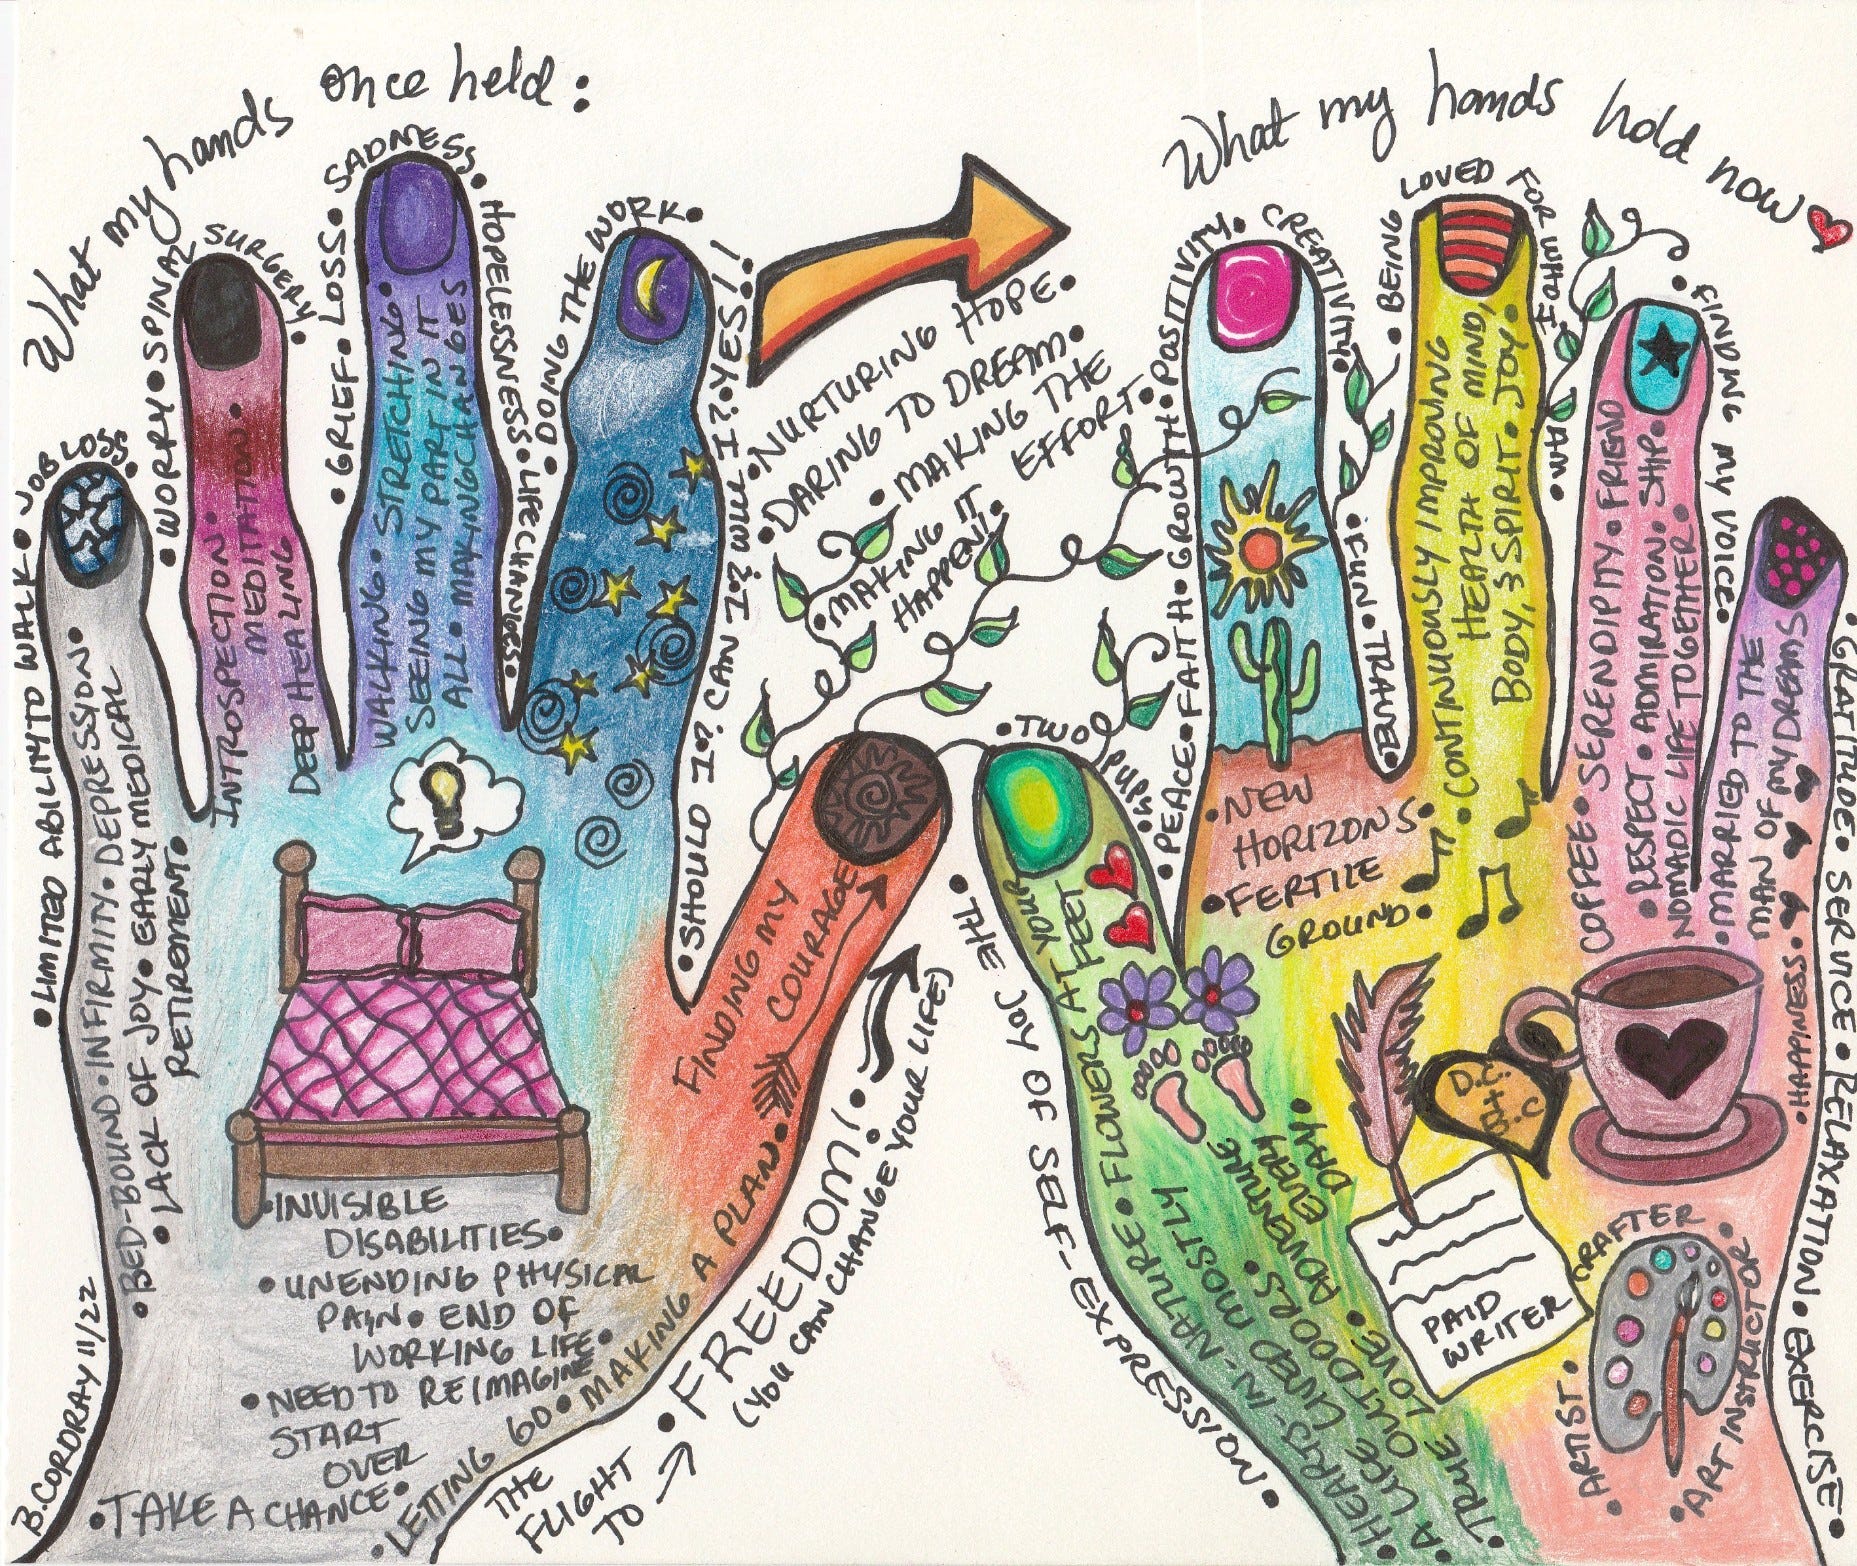 What my hands once held:
• LIMITED ABILITY TO WALK • JOB LOSS •
• WORRY • SPINAL SURGERY •
• GRIEF • LOSS • SADNESS •
HOPELESSNESS • LIFE CHANGES •
• DOING THE WORK •
• SHOULD I? CAN I? WILL I? YES!!
BED-BOUND • INFIRMITY • DEPRESSION •
• LACK OF JOY • EARLY MEDICAL
RETIREMENT •
INTROSPECTION •
MEDITATION •
DEEP HEALING
WALKING • STRETCHING •
SEEING MY PART IN IT
ALL • MAKING CHANGES
FINDING MY
COURAGE
• INVISIBLE
DISABILITIES •
• UNENDING PHYSICAL
PAIN • END OF
WORKING LIFE •
• NEED TO REIMAGINE
START
OVER
• TAKE A CHANCE •
• LETTING GO • MAKING A PLAN •
THE
FLIGHT
TO
• FREEDOM! •
(YOU CAN CHANGE YOUR LIFE)
B. CORDRAY 11/22
• NURTURING HOPE •
• DARING TO DREAM •
• MAKING THE
EFFORT •
• MAKING IT
HAPPEN! •
What my hands hold now
• PEACE • FAITH • GROWTH • POSITIVITY •
CREATIVITY •
• FUN • TRAVEL •
• BEING LOVED FOR WHO I AM •
• FINDING MY VOICE •
• GRATITUDE • SERVICE • RELAXATION • EXERCISE •
• HAPPINESS •
• TWO PUPPY
• THE JOY OF SELF-EXPRESSION •
• NEW
HORIZONS •
• FERTILE
GROUND •
• CONTINUOUSLY IMPROVING
HEALTH OF MIND,
BODY, & SPIRIT • JOY •
COFFEE • SERENDIPITY • FRIEND
• RESPECT • ADMIRATION • SHIP •
NOMADIC LIFE TOGETHER •
• MARRIED TO THE
MAN OF MY DREAMS
• HEARTS-IN-NATURE • FLOWERS AT YOUR FEET
• A LIFE LIVED MOSTLY
OUTDOORS •
ADVENTURE
EVERY
DAY •
TRUE LOVE •
D.C.
+
B.C
PAID
WRITER
CRAFTER
ARTIST •
• ART INSTRUCTOR •